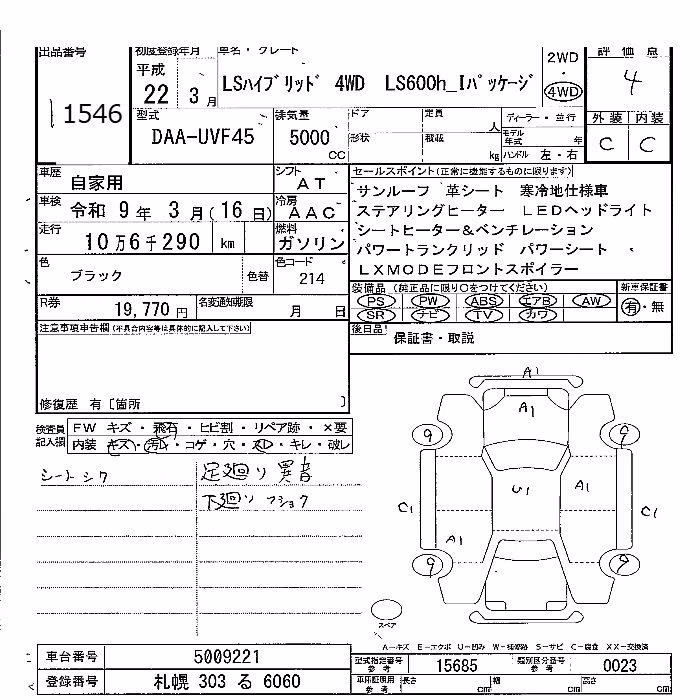 出品番号
1546
初度登録年月
平成
22 3 月
車名・グレード
LSハイブリッド 4WD LS600h_Iパッケージ
2WD
・
4WD
評価点
4
外装 内装
C C
型式
DAA-UVF45
排気量
5000
CC
ドア
定員
人
形状
積載
kg
ディーラー・並行
モデル年式
年式
ハンドル 左・右
車歴
自家用
シフト
AT
車検
令和 9年 3月(16日)
冷房
AAC
走行
10万6千290 km
燃料
ガソリン
色
ブラック
色替
色コード
214
R券
19,770 円
名変通知期限
月 日
セールスポイント(正常に機能するものに限ります)
サンルーフ 革シート 寒冷地仕様車
ステアリングヒーター LEDヘッドライト
シートヒーター&ベンチレーション
パワートランクリッド パワーシート
LXMODEフロントスポイラー
装備品 (純正品に限り○をつけてください)
PS PW ABS エアB AW
SR ナビ TV カワ
新車保証書
有・無
後日品!
保証書・取説
注意事項申告欄(不具合内容等は具体的に記入して下さい)
修復歴 有〔箇所 〕
検査員
記入欄
FW キズ・飛石・ヒビ割・リペア跡・×要
内装 キズ・汚レ・コゲ・穴・スレ・キレ・破レ
シートシワ
足廻り異音
下廻りフショク
A1
A1
9
9
U1
A1
C1
C1
A1
9
9
スペア
A-キズ E-エクボ U-凹み W-補修跡 S-サビ C-腐食 XX-交換済
車台番号
5009221
登録番号
札幌 303 る 6060
型式指定番号
参考
15685
類別区分番号
参考
0023
車両証明用
参考
長さ
cm
幅
cm
高さ
cm